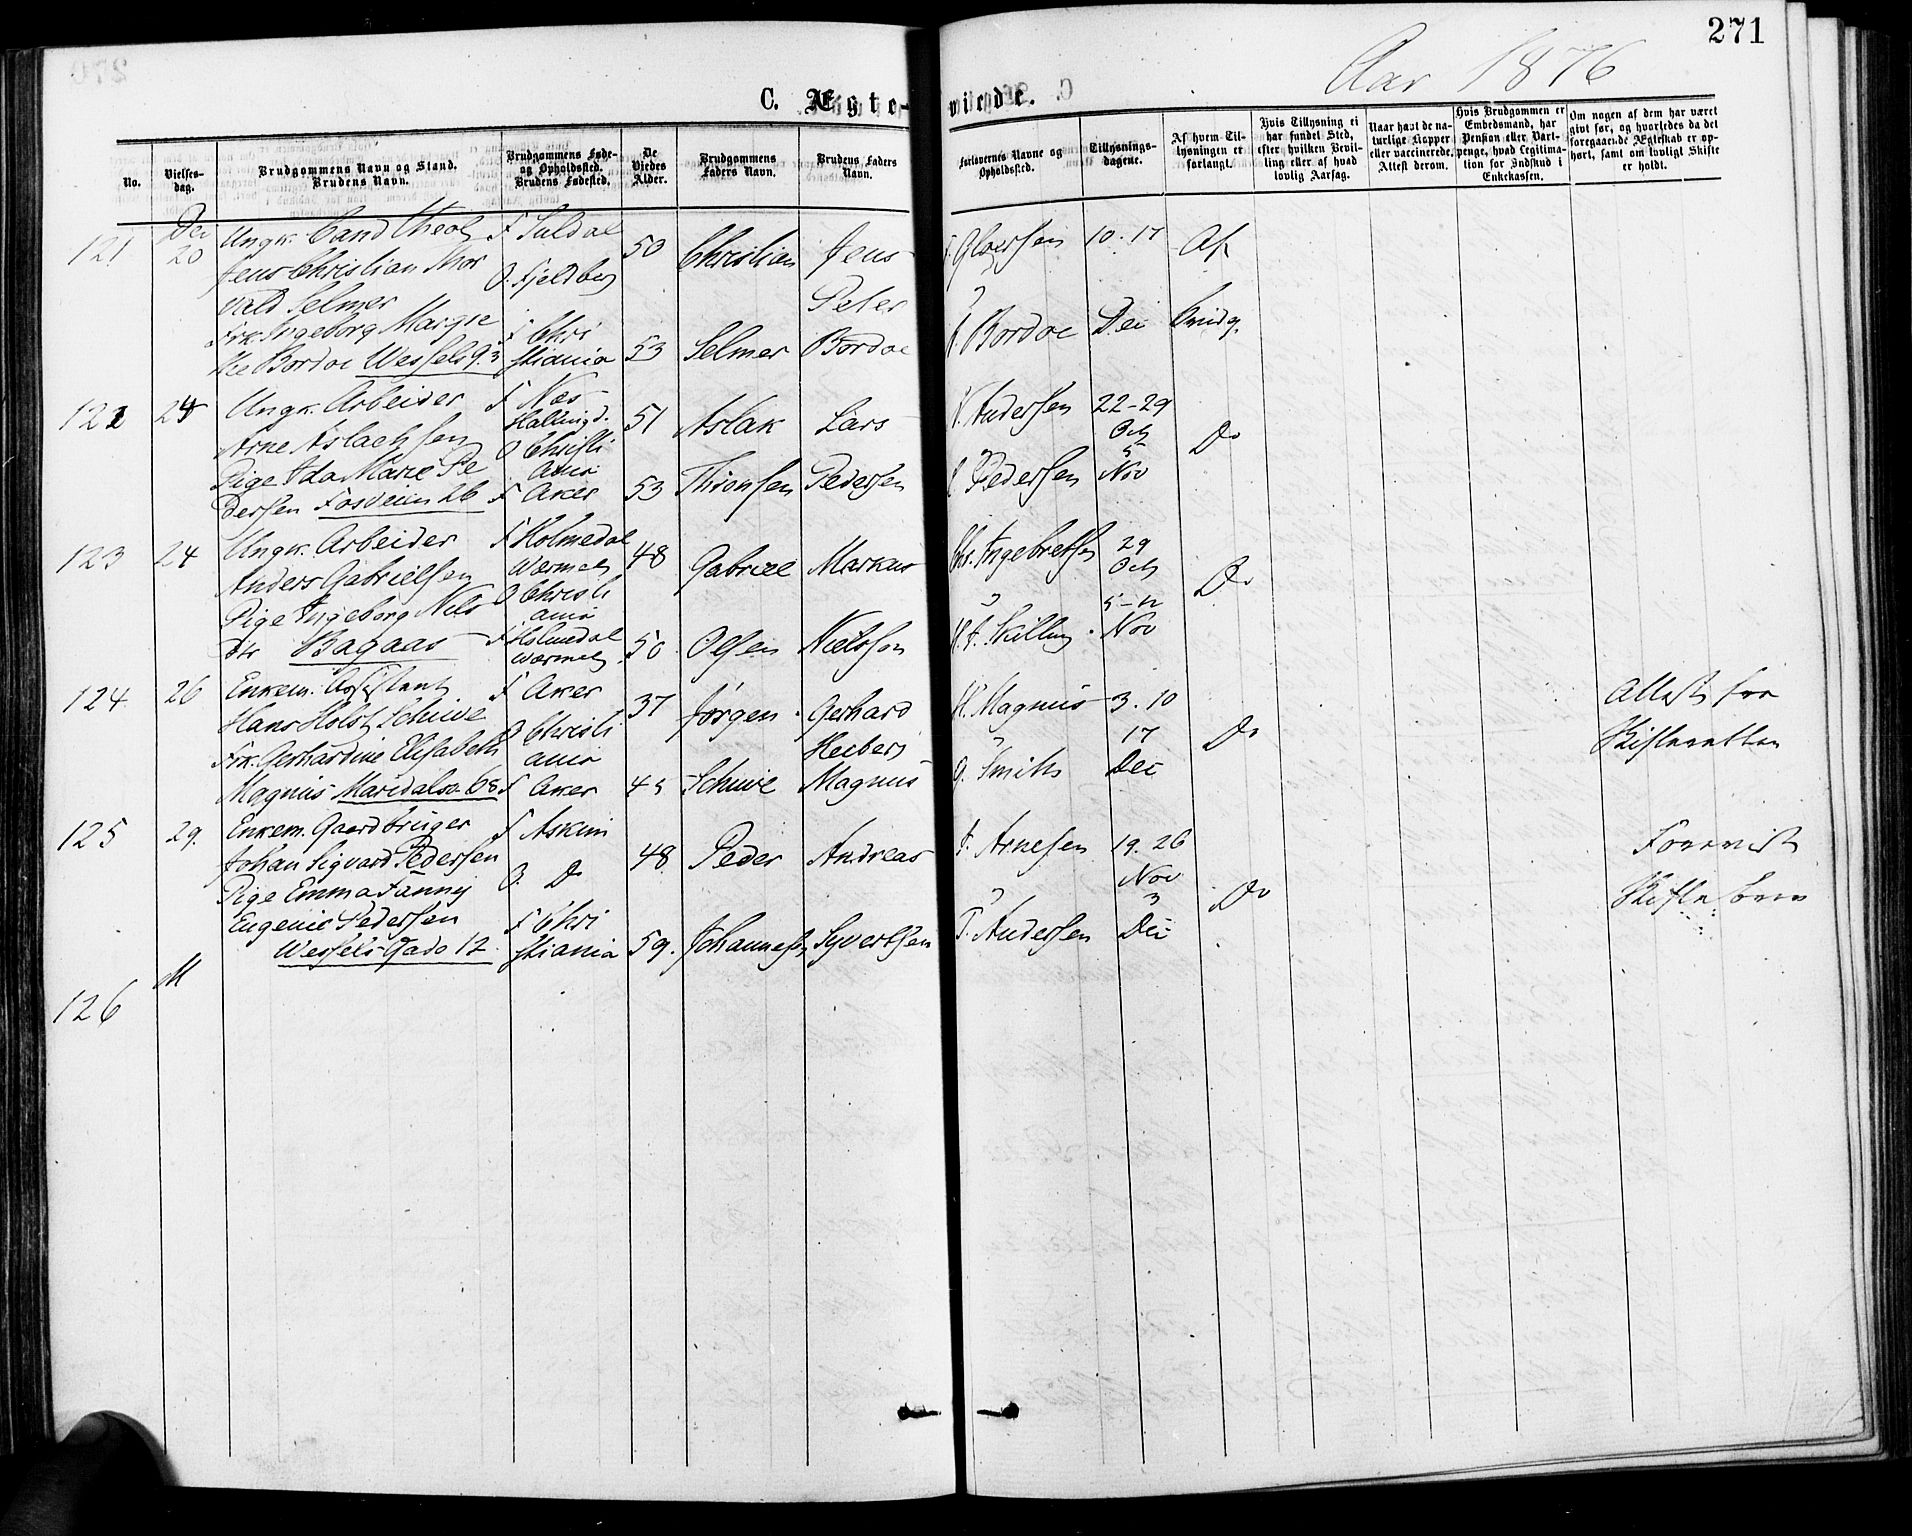 271
Aar 1876
C. Ægte-
viede.
No.
Vielses-
dag.
Brudgommens Navn og Stand.
Brudens Navn.
Brudgommens Føde-
og Opholdssted.
Brudens Fødested.
De
Viedes
Alder.
Brudgommens
Faders Navn.
Brudens Faders
Navn.
Forlovernes Navne og
Opholdssted.
Tillysnings-
dagene.
Af hvem Til-
lysningen er
forlangt.
Hvis Tillysning ei
har fundet Sted,
efter hvilken Bevil-
ling eller af hvad
lovlig Aarsag.
Naar havt de na-
turlige Kopper
eller vaccinerede.
Attest derom.
Hvis Brudgommen er
Embedsmand, har
Pension eller Vart-
penge, hvad Legitima-
tion for Indskud i
Enkekassen.
Om nogen af dem har været
givt før, og hvorledes da det
foregaaende Ægteskab er op-
hørt, samt om lovligt Skifte
er holdt.
121
Dec
20
Ungk. Cand Theol
Jens Christian Thor
vald Selmer
Frk. Ingeborg Margre
the Bordoe Wessels g. 3
F Suldal
O. Fjeldberg
F Chri
stiania
50
53
Christian
Selmer
Jens
Peter
Bordoe
Gløersen
Bordoe
10. 17
Dec
Af
Brudg.
122
24
Ungk. Arbeider
Arne Aslachsen
Pige Ida Marie Pe
dersen Fosveien 26
F Næs
Hallingd.
O Christi
ania
F Aker
51
53
Aslak
Thronsen
Lars
Pedersen
Andersen
Pedersen
22-29
Octb
5
Nov
Do
123
24
Ungk. Arbeider
Anders Gabrielsen
Pige Ingeborg Nils
dtr Bagaas
F Holmedal
Wærmel
O Christi
ania
F Holmedal
Wærmel
48
50
Gabriel
Olsen
Markus
Nielssøn
Chr. Ingebretsen
Skilling
29
Octb
5-12
Nov
Do
124
26
Enkem. Assistant
Hans Holst Schive
Frk. Gerhardine Elisabeth
Magnus Maridalsv. 68
F Aker
O Christi
ania
F Aker
37
45
Jørgen
Schive
Gerhard
Herberg
Magnus
Magnus
Smith
3. 10
17
Dec
Do
Attest fra
Skifteretten
125
29.
Enkem. Gaardbruger
Johan Sigvard Pedersen
Pige Emma Fanny
Eugenie Pedersen
Wessels Gade 12
F Askim
O. Do
F Chri
stiania
48
59.
Peder
Johannesen
Andreas
Syvertsen
Arnesen
Andersen
19. 26
Nov
3
Dec
Do
Forevist
126
M